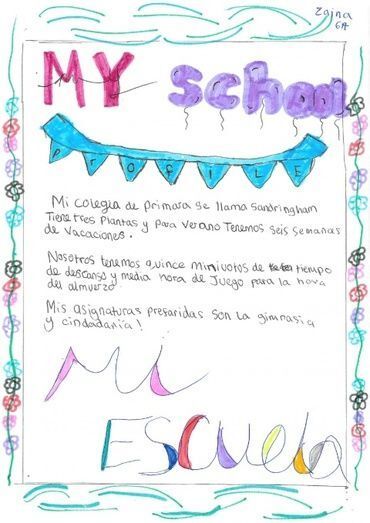 Zaina
6A
MY School
PROFILE
Mi colegio de primara se llama Sandringham
Tiene tres Plantas y Para verano Tenemos seis semanas
de Vacaciones.
Nosotros tenemos quince minivotos de tiempo
de descanso y media hora de Juego para la hora
del almuerzo
Mis asignaturas prefaridas son la gimnasia
y ciudadania!
Mi
ESCUela